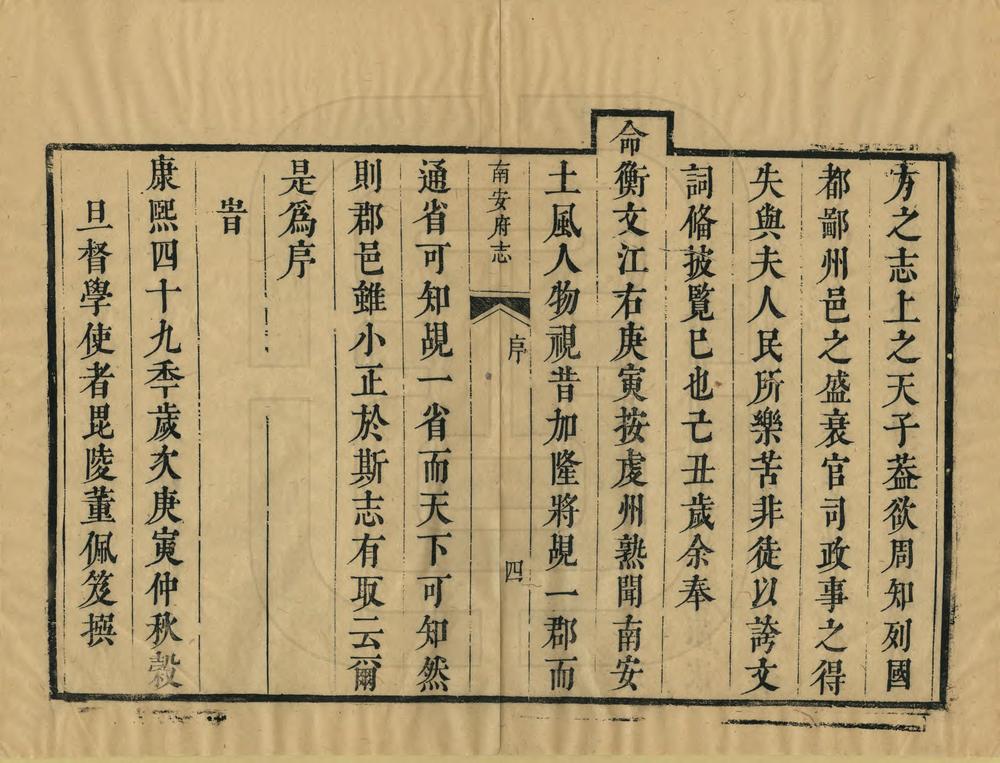 方之志上之天子葢欲周知列國
都鄙州邑之盛衰官司政事之得
失與夫人民所樂苦非徒以誇文
詞俻披覽已也己丑歲余奉
命衡文江右庚寅按虔州熟聞南安
土風人物視昔加隆將覘一郡而
南安府志 序 四
通省可知覘一省而天下可知然
則郡邑雖小正於斯志有取云爾
是爲序
旹
康熙四十九秊歲次庚寅仲秋穀
旦督學使者毘陵董佩笈撰